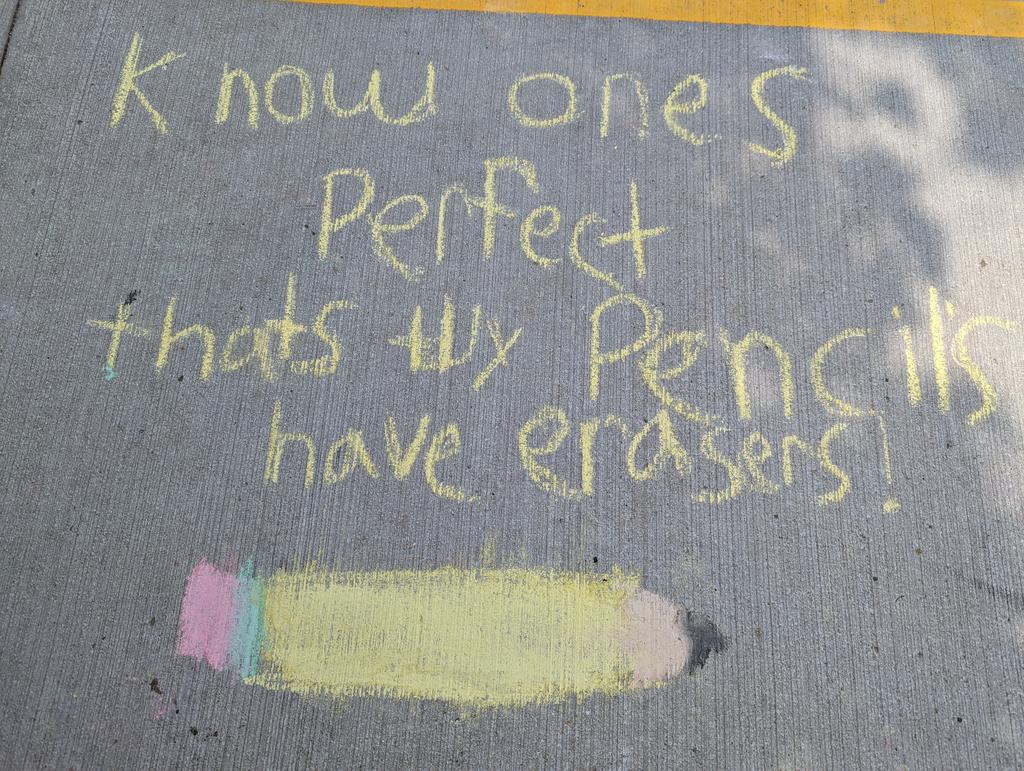 Know ones
Perfect
thats wy Pencil's
have erasers!